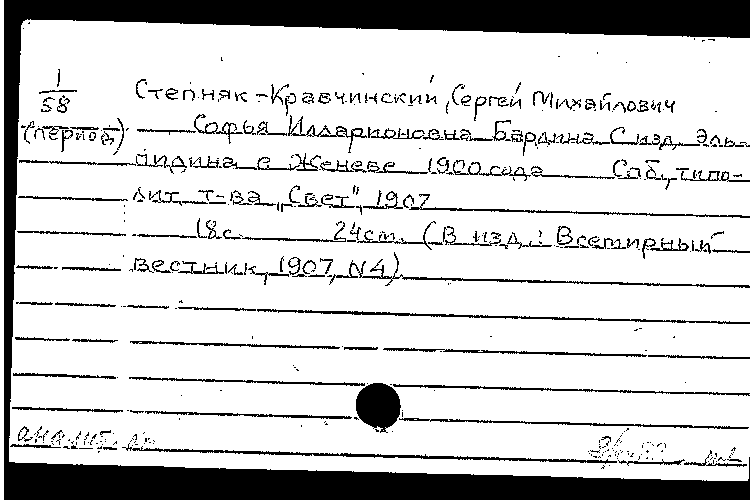 1
58
(период)
Степняк-Кравчинский, Сергей Михайлович
Софья Илларионовна Бардина. С изд. Эль-
пидина в Женеве 1900 года Спб., типо-
лит. т-ва "Свет", 1907
18с. 24см. (В изд.: Всемирный
вестник, 1907, N4).
аналит.